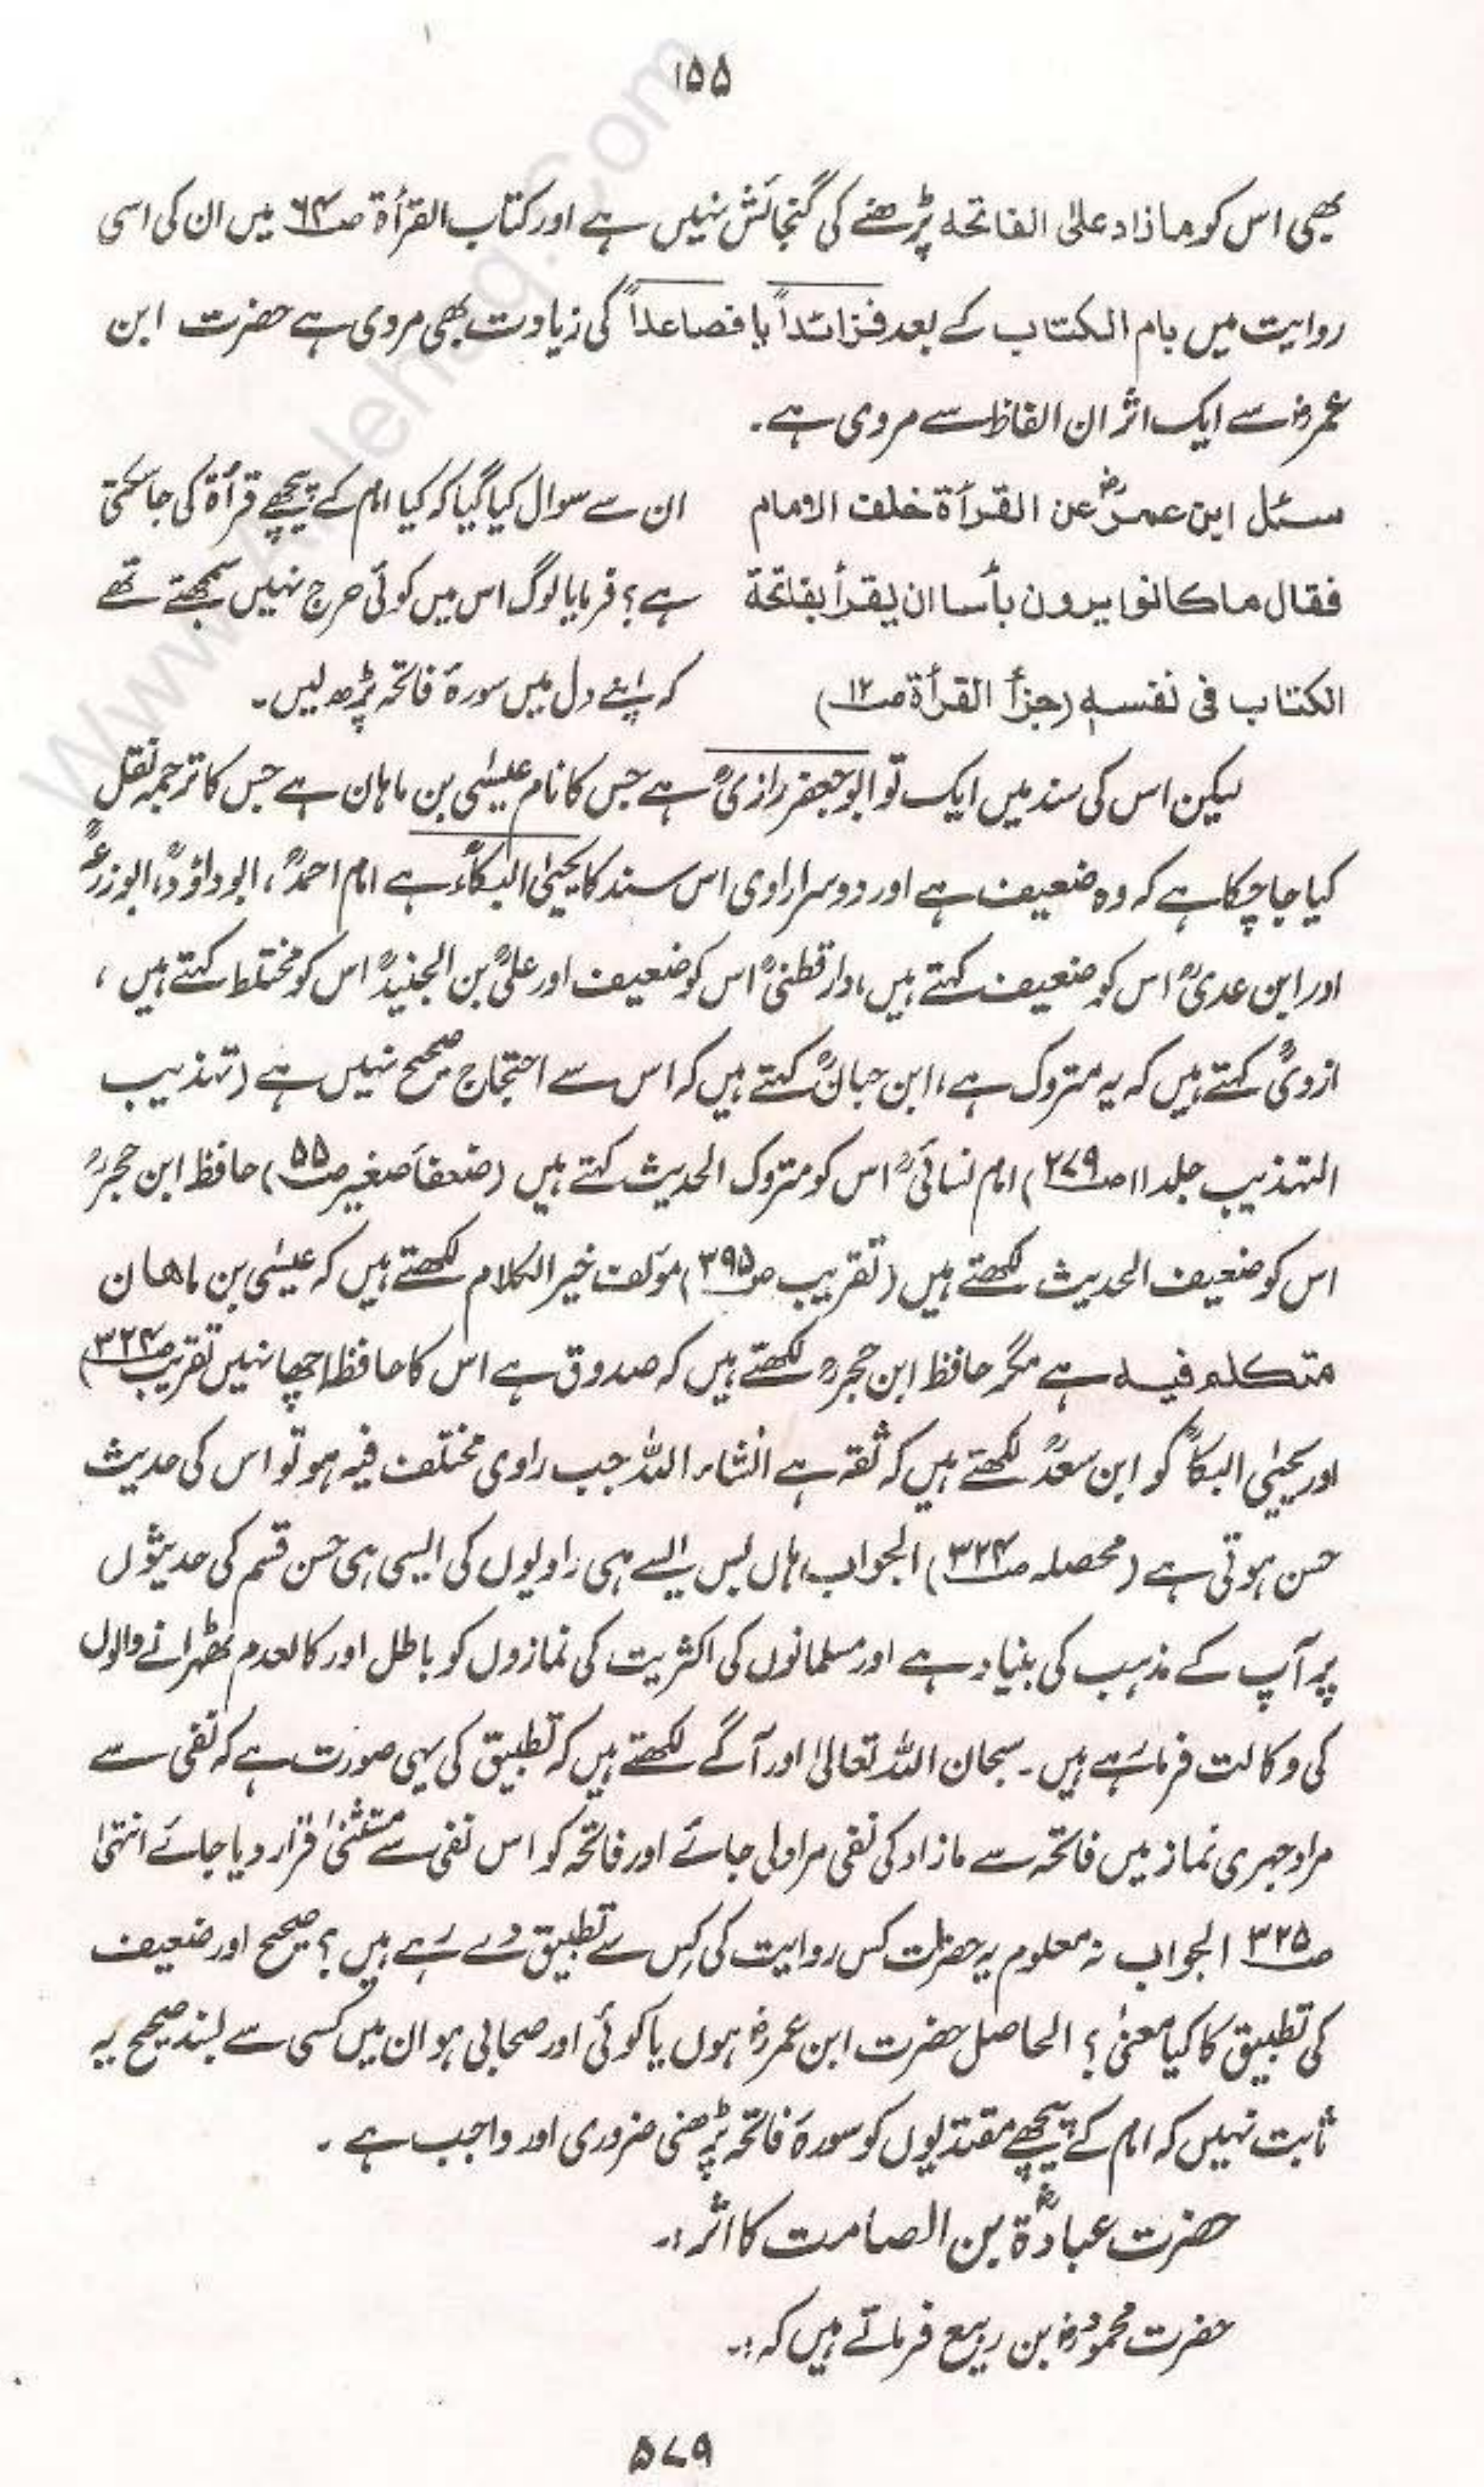 ۱۵۵
بھی اس کو مازاد علی الفاتحہ پڑھنے کی گنجائش نہیں ہے اور کتاب القرأة ص۶۴ میں ان کی اسی
روایت میں بام الکتاب کے بعد فزائداً یا فصاعداً کی زیادت بھی مروی ہے حضرت ابن
عمرؓ سے ایک اثر ان الفاظ سے مروی ہے۔
سئل ابن عمرؓ عن القرأة خلف الامام ان سے سوال کیا گیا کہ کیا امام کے پیچھے قرأة کی جا سکتی
فقال ما کانوا یرون بأسا ان یقرأ بفاتحة ہے؟ فرمایا لوگ اس میں کوئی حرج نہیں سمجھتے تھے
الکتاب فی نفسہٖ (جزأ القرأة ص۱۲) کہ اپنے دل میں سورۂ فاتحہ پڑھ لیں۔
لیکن اس کی سند میں ایک تو ابو جعفر رازیؒ ہے جس کا نام عیسٰی بن ماہان ہے جس کا ترجمہ نقل
کیا جا چکا ہے کہ وہ ضعیف ہے اور دوسرا راوی اس سند کا یحییٰ البکاؒء ہے امام احمدؒ، ابو داؤدؒ، ابو زرعہؒ
اور ابن عدیؒ اس کو ضعیف کہتے ہیں، دارقطنیؒ اس کو ضعیف اور علیؒ بن الجنیدؒ اس کو مختلط کہتے ہیں،
ازدیؒ کہتے ہیں کہ یہ متروک ہے، ابن حبانؒ کہتے ہیں کہ اس سے احتجاج صحیح نہیں ہے (تہذیب
التہذیب جلد ۱۱ ص۲۷۹) امام نسائیؒ اس کو متروک الحدیث کہتے ہیں (ضعفاَ صغیر ص۵۵) حافظ ابن حجرؒ
اس کو ضعیف الحدیث لکھتے ہیں (تقریب ص۳۹۵) مؤلف خیر الکلام لکھتے ہیں کہ عیسٰی بن ماھان
متکلم فیہ ہے مگر حافظ ابن حجرؒ لکھتے ہیں کہ صدوق ہے اس کا حافظہ اچھا نہیں تقریب ص۳۲۴)
اور یحییٰ البکاؒ کو ابن سعدؒ لکھتے ہیں کہ ثقہ ہے انشاء اللہ جب راوی مختلف فیہ ہو تو اس کی حدیث
حسن ہوتی ہے (محصلہ ص۳۲۴) الجواب ہاں بس ایسے ہی راویوں کی ایسی ہی حسن قسم کی حدیثوں
پر آپ کے مذہب کی بنیاد ہے اور مسلمانوں کی اکثریت کی نمازوں کو باطل اور کالعدم ٹھہرانے والوں
کی وکالت فرما رہے ہیں۔ سبحان اللہ تعالیٰ اور آگے لکھتے ہیں کہ تطبیق کی یہی صورت ہے کہ نفی سے
مراد جہری نماز میں فاتحہ سے مازاد کی نفی مراد لی جائے اور فاتحہ کو اس نفی سے مستثنیٰ قرار دیا جائے انتہیٰ
ص۳۲۵ الجواب نہ معلوم یہ حضرات کس روایت کی کس سے تطبیق دے رہے ہیں؟ صحیح اور ضعیف
کی تطبیق کا کیا معنیٰ؟ الحاصل حضرت ابن عمرؓ ہوں یا کوئی اور صحابی ہو ان میں کسی سے بسند صحیح یہ
ثابت نہیں کہ امام کے پیچھے مقتدیوں کو سورۂ فاتحہ پڑھنی ضروری اور واجب ہے۔
حضرت عبادۃؓ بن الصامت کا اثر:۔
حضرت محمودؓ بن ربیع فرماتے ہیں کہ:۔
۵۷۹
www.Alehaq.Com